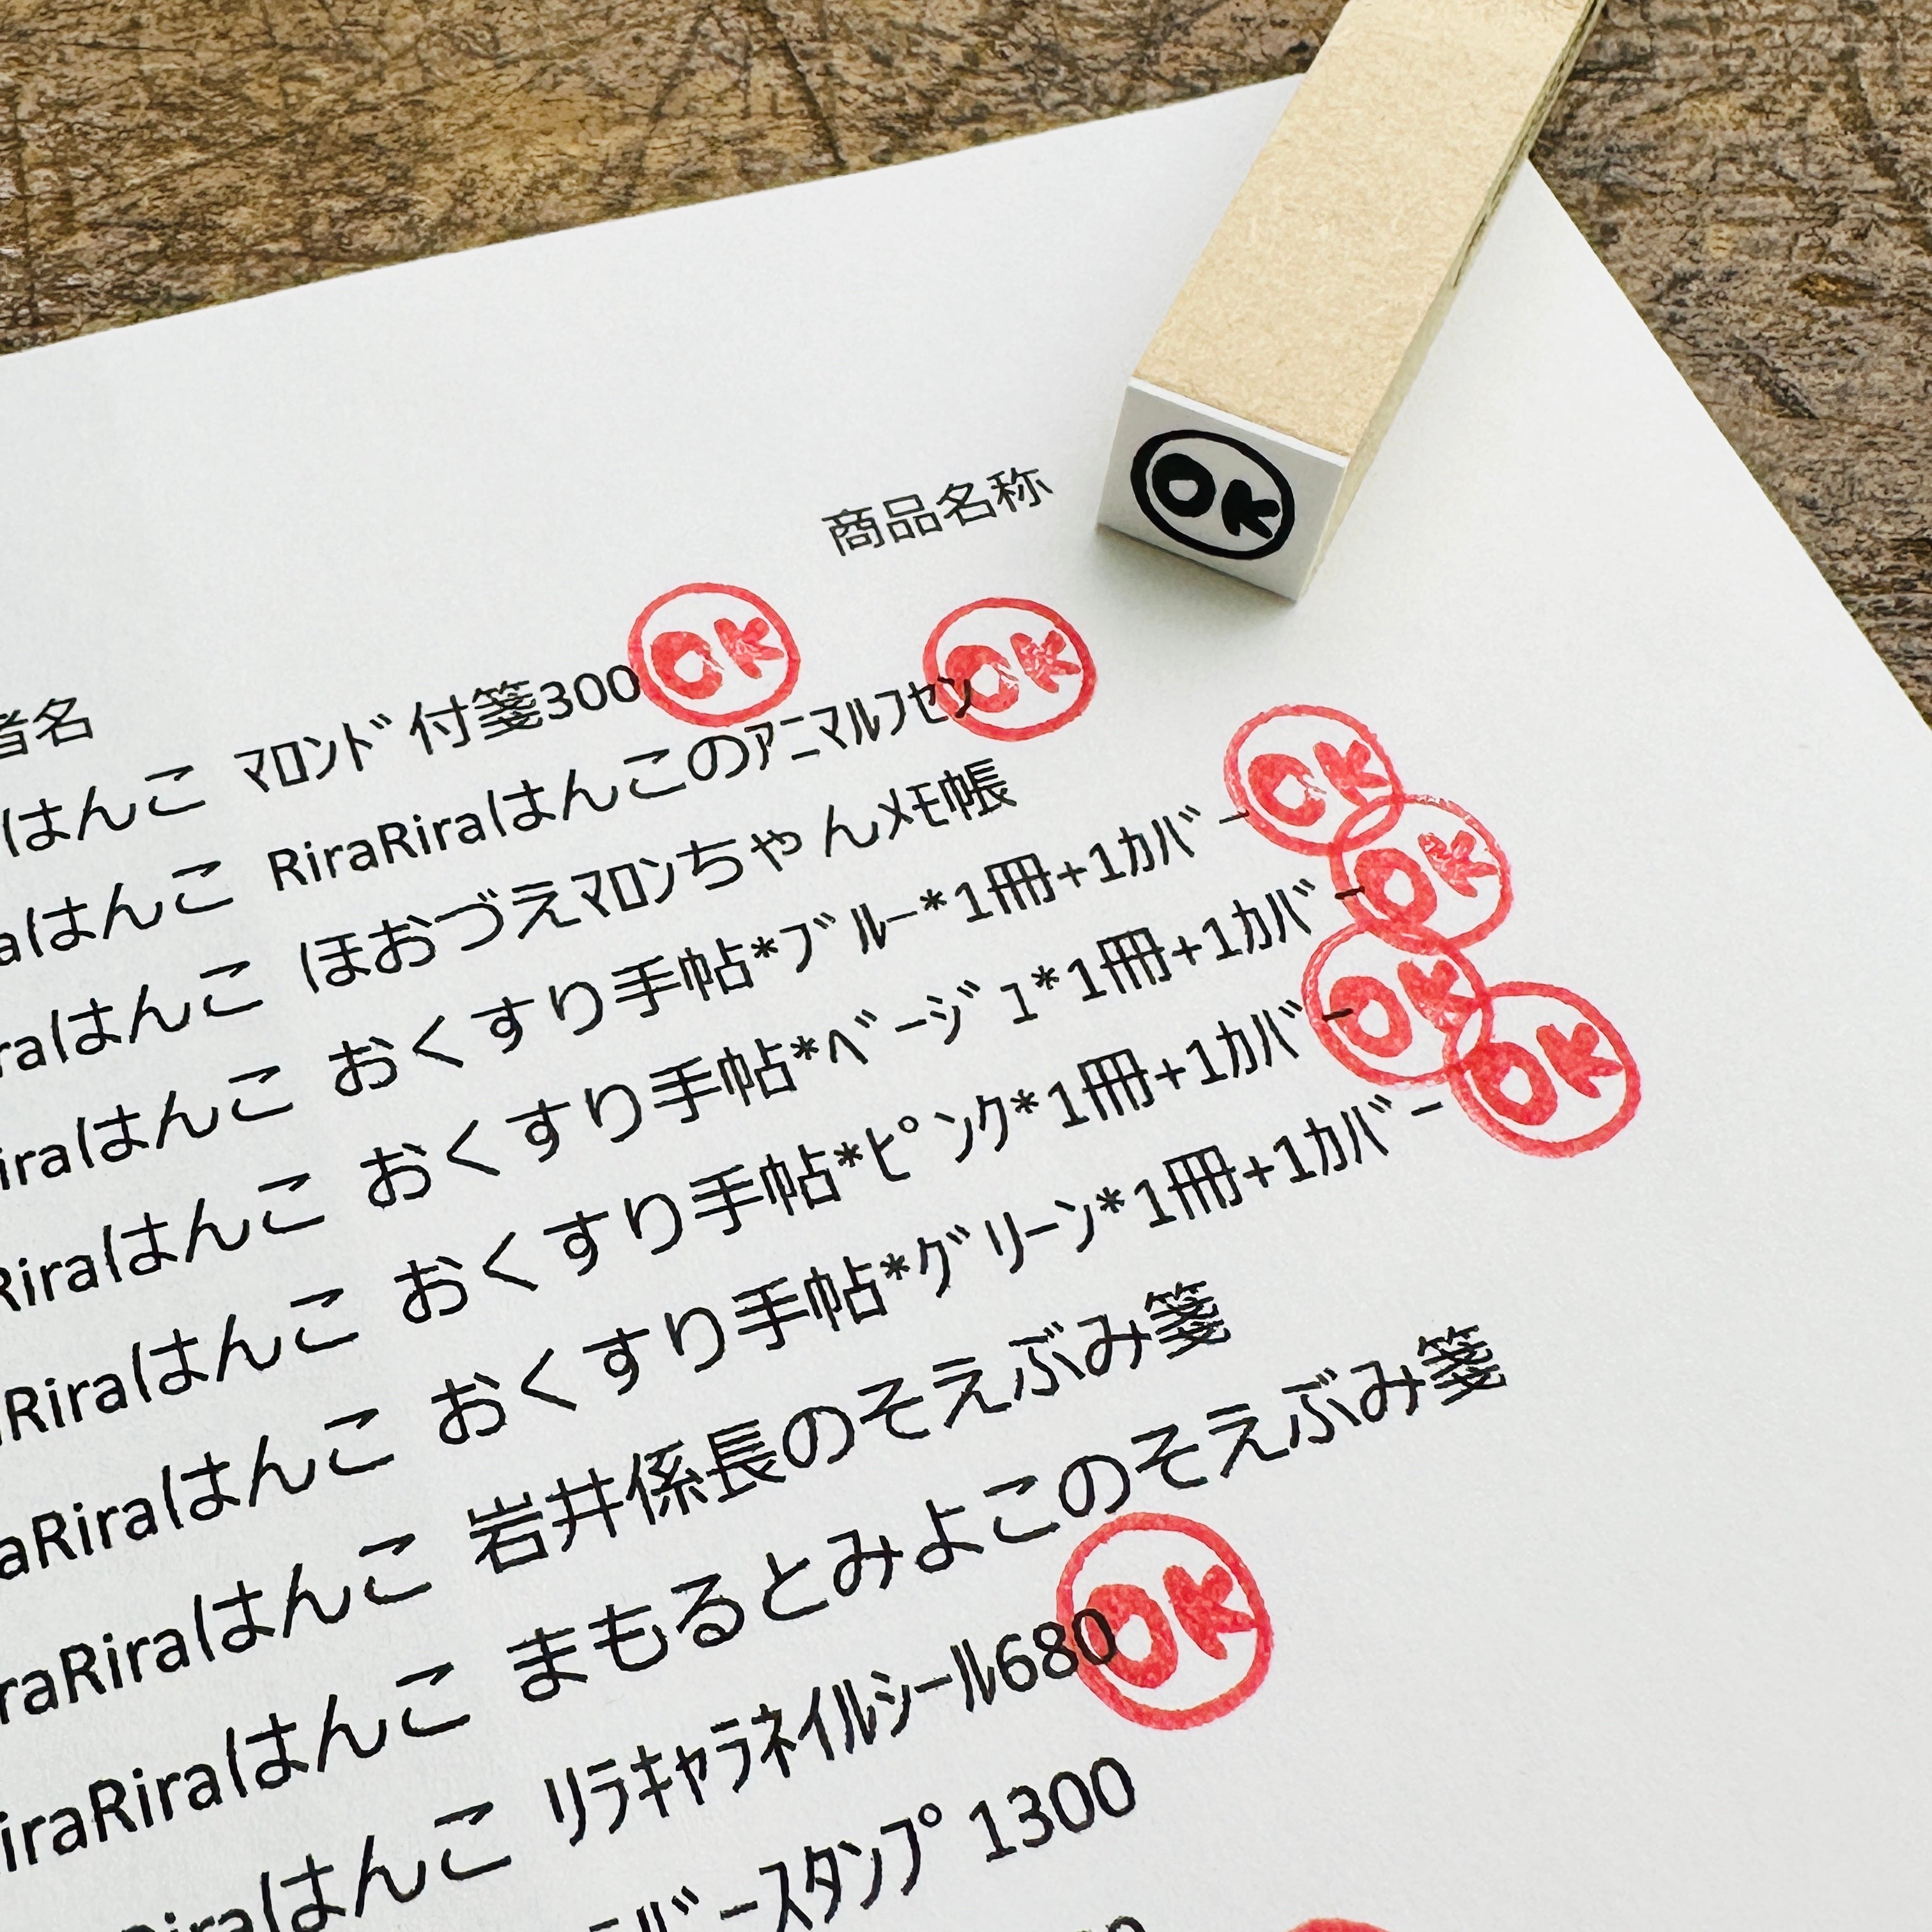 OK
商品名称
者名
はんこ ﾏﾛﾝﾄﾞ付箋300 OK
aはんこ RiraRiraはんこのｱﾆﾏﾙﾌｾﾝ OK
raはんこ ほおづえﾏﾛﾝちゃんﾒﾓ帳
iraはんこ おくすり手帖*ﾌﾞﾙｰ*1冊+1ｶﾊﾞｰ OK
Riraはんこ おくすり手帖*ﾍﾞｰｼﾞｭ*1冊+1ｶﾊﾞｰ OK
Riraはんこ おくすり手帖*ﾋﾟﾝｸ*1冊+1ｶﾊﾞｰ OK
aRiraはんこ おくすり手帖*ｸﾞﾘｰﾝ*1冊+1ｶﾊﾞｰ OK
raRiraはんこ 岩井係長のそえぶみ箋
iraRiraはんこ まもるとみよこのそえぶみ箋
Riraはんこ ﾘﾗｷｬﾗﾈｲﾙｼｰﾙ680 OK
ﾊﾞｰｽﾀﾝﾌﾟ1300